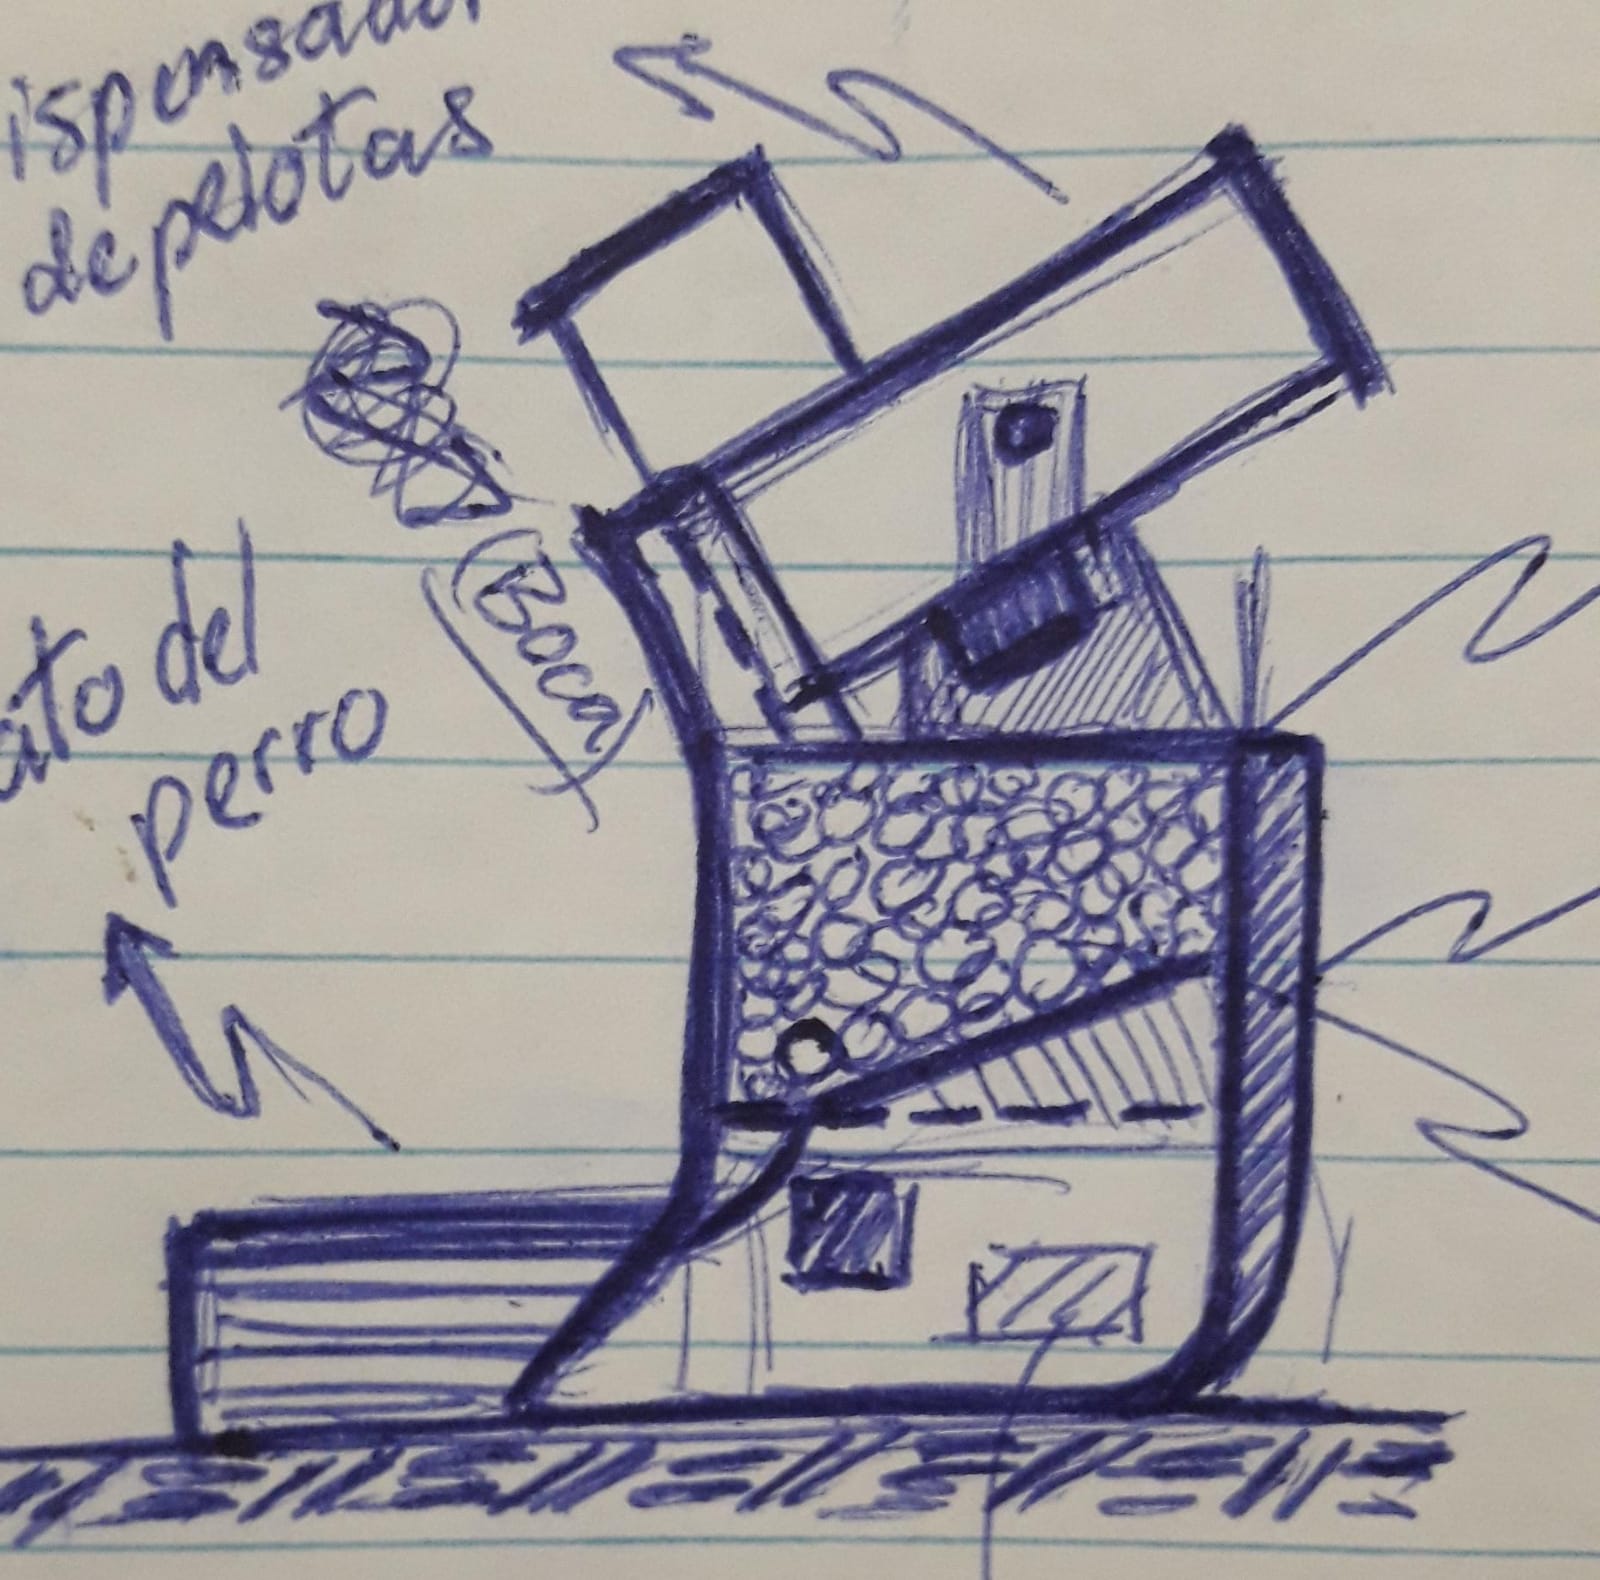 ispensador
de pelotas
(Boca)
ato del
perro